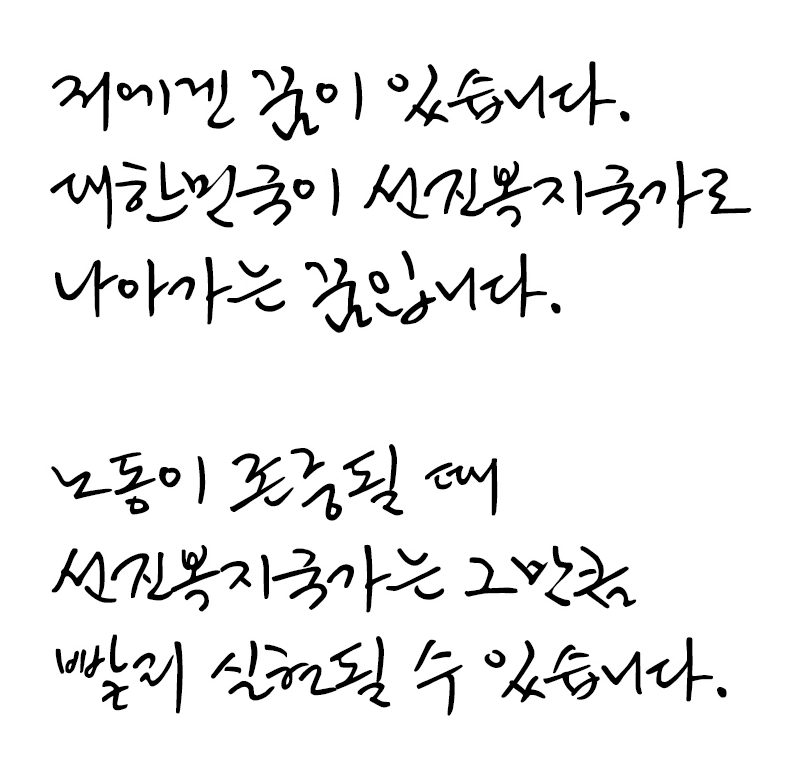 저에겐 꿈이 있습니다.
대한민국이 선진복지국가로
나아가는 꿈입니다.
노동이 존중될 때
선진복지국가는 그만큼
빨리 실현될 수 있습니다.